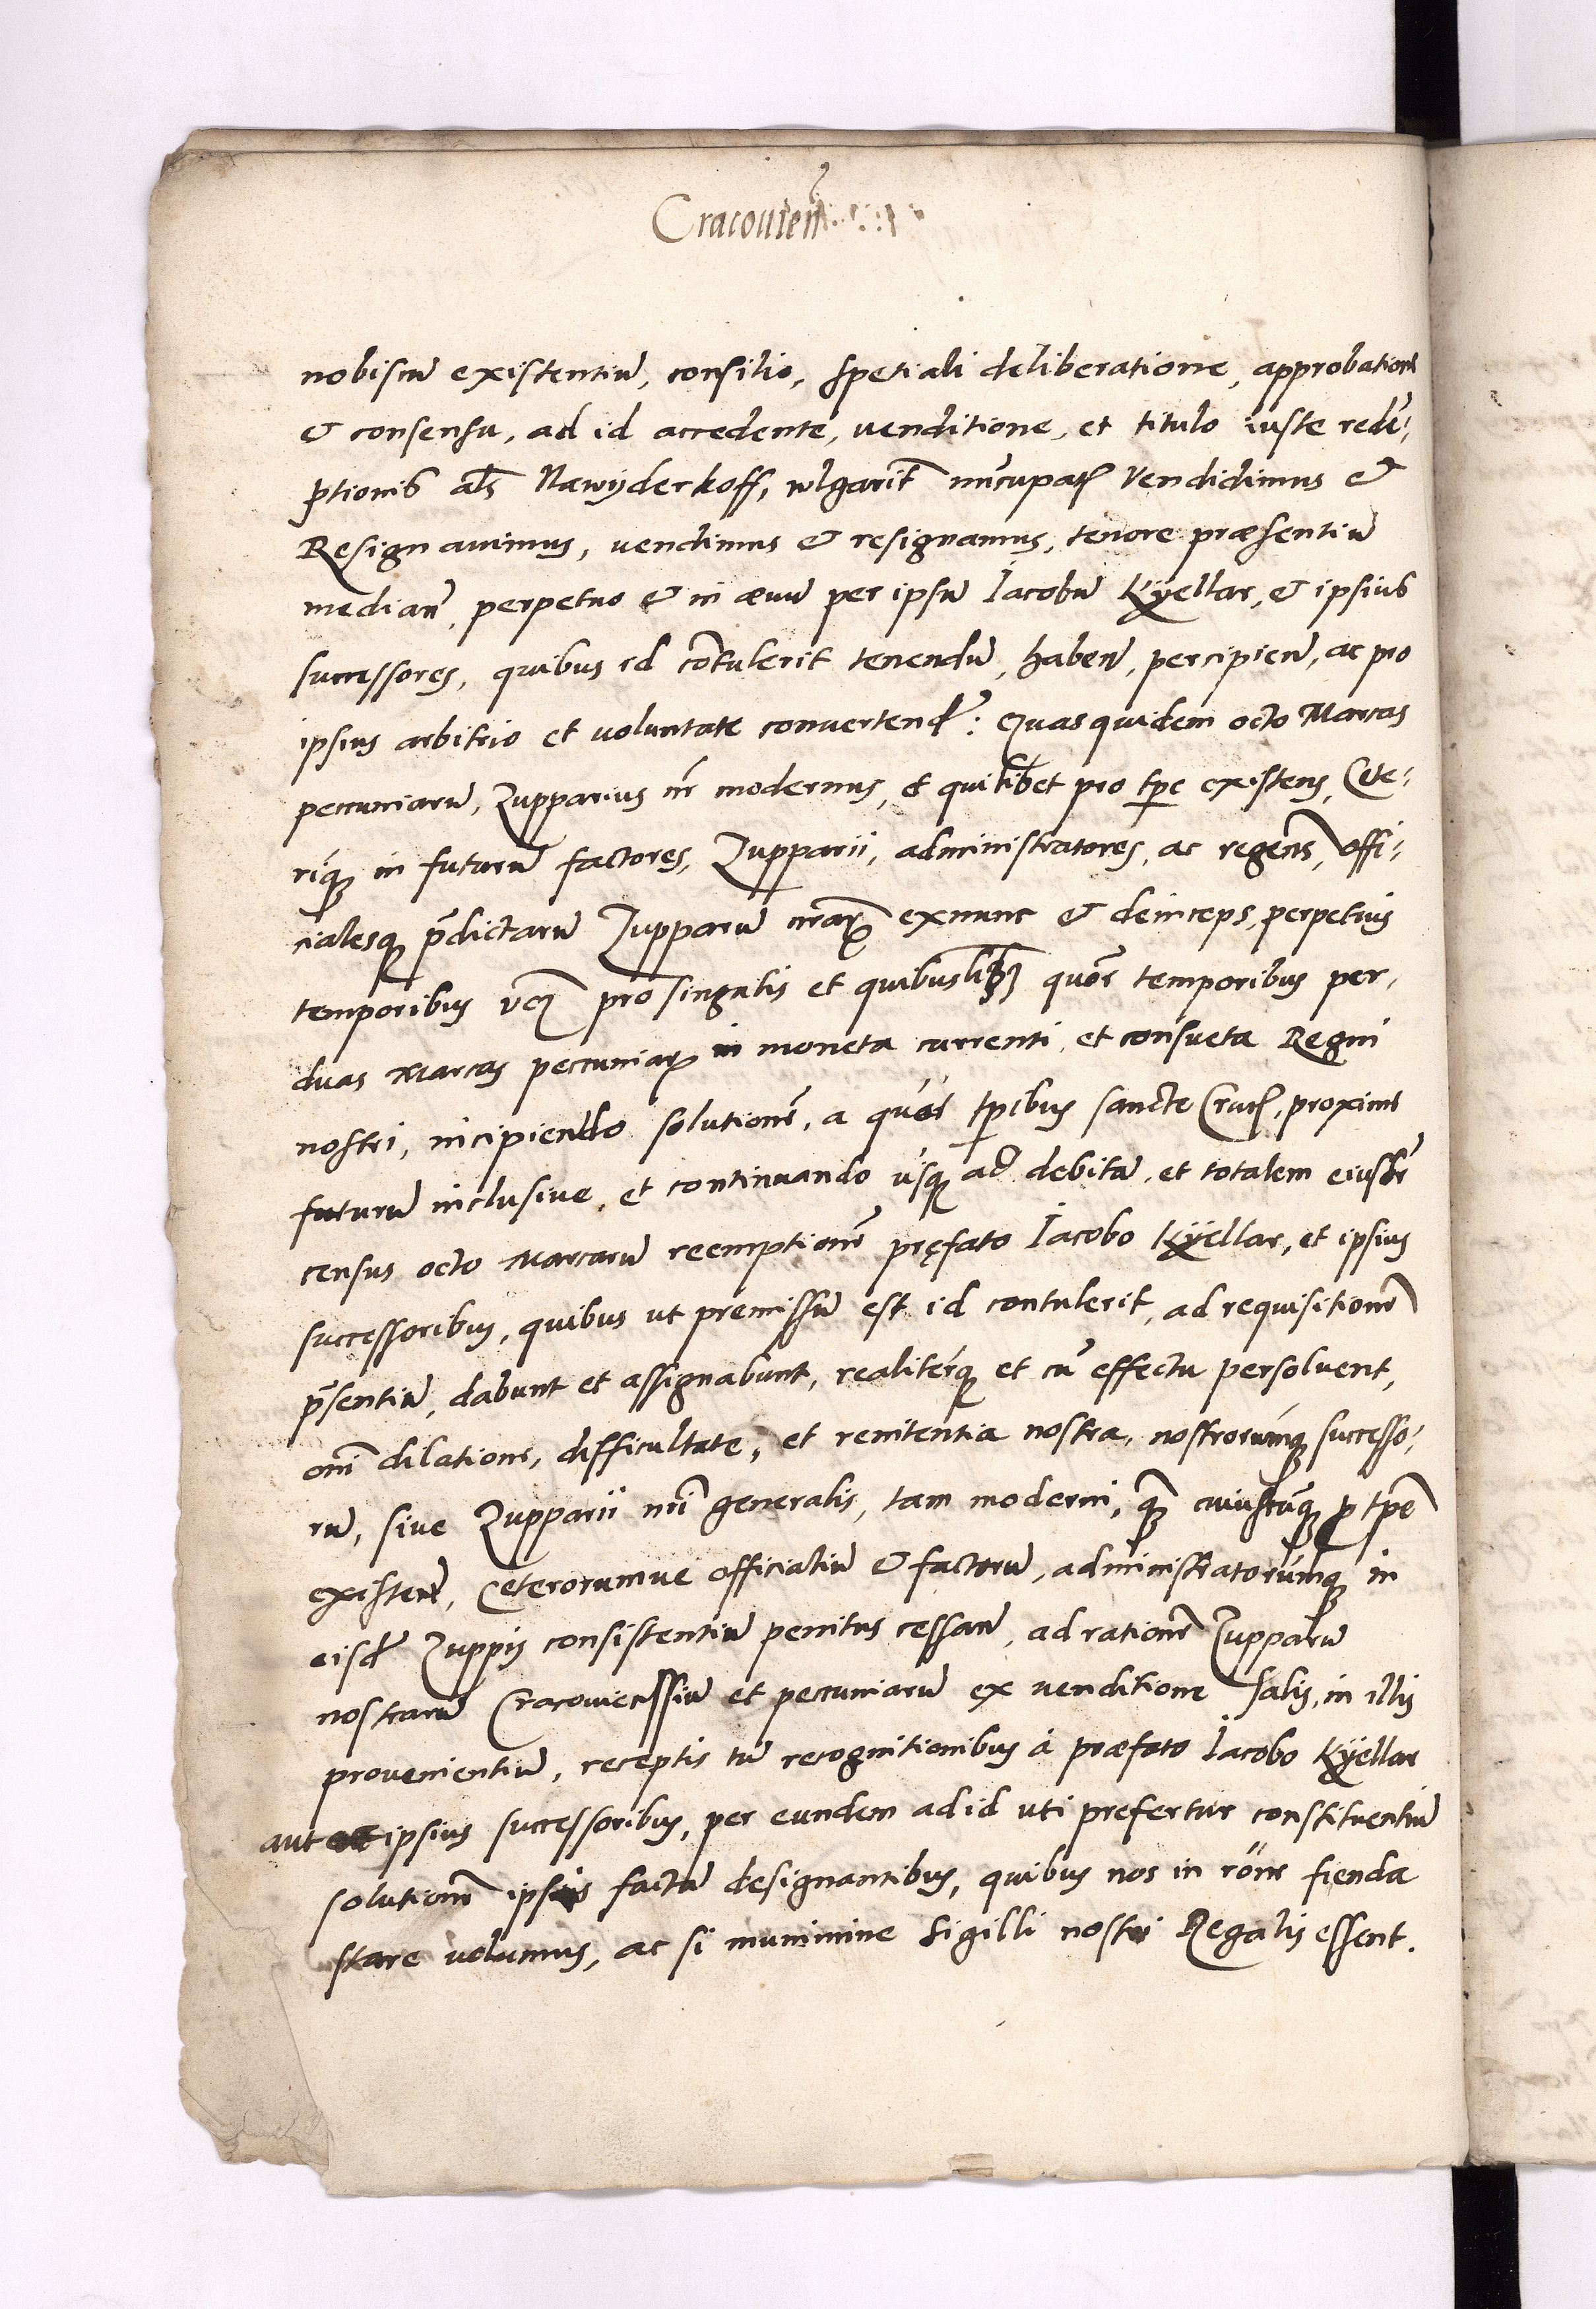 Cracouien̄
nobiscū existentiū, consilio, spetiali deliberatione, approbatione
& consensu, ad id accedente, venditione, et titulo iuste redē-
ptionis als̄ Nawyderkoff, wlgarit̄ nūcupat. Vendidimus &
Resignauimus, vendimus & resignamus, tenore præsentiū
median̄, perpetuo & in æuū per ipsū Iacobū Kÿellar, & ipsius
successores, quibus id cōtulerit tenendū, haben̄, percipien̄, ac pro
ipsius arbitrio et voluntate convertend̄: Quas quidem octo Marcas
peccuniarū, Zupparius nr̄ modernus, et quilibet pro tp̄e existens, Cete-
riq̨ in futurū factores, Zupparii, administratores, ac regen̄s, offi-
cialesq̨ p̄dictarū Zupparū nr̄arꝝ exnunc & deinceps, perpetuis
temporibus vcꝫ pro singulis et quibuslibꝫ quōr temporibus per
duas Marcas peccuniarꝝ in moneta currenti, et consueta Regni
nostri, incipiendo solutionē, a quōr tp̄ibus sancte Cruc., proxime
futurū inclusive, et continuando usq̨ ad debitā, et totalem eiusdē
census octo Marcarū reemptionē pręfato Iacobo Kÿellar, et ipsius
successoribus, quibus ut premissū est id contulerit, ad requisitionē
p̄sentiū, dabunt et assignabunt, realitérq̨ et cū effectu persoluent,
omī dilatione, difficultate, et renitentia nostra, nostrorúmq̨ successo-
rū, sive Zupparii nr̄i generalis, tam moderni, q̨̄ cuiuscūq̨ p tp̄e
existen̄, Ceterorumue officialiū & factorū, administratorúmq̨ in
eisd̄ Zuppis consistentiū penitus cessan̄, ad rationē Zupparū
nostrarū Cracouienssiū et peccuniarū ex venditione salis, in illis
provenientiū, receptis tn̄ recognitionibus à præfato Iacobo Kÿellar
aut ipsius successoribus, per eundem ad id uti prefertur constituentiū
solutionē ipsis factā designantibus, quibus nos in rōne fienda
stare volumus, ac si munimine sigilli nostri Regalis essent.